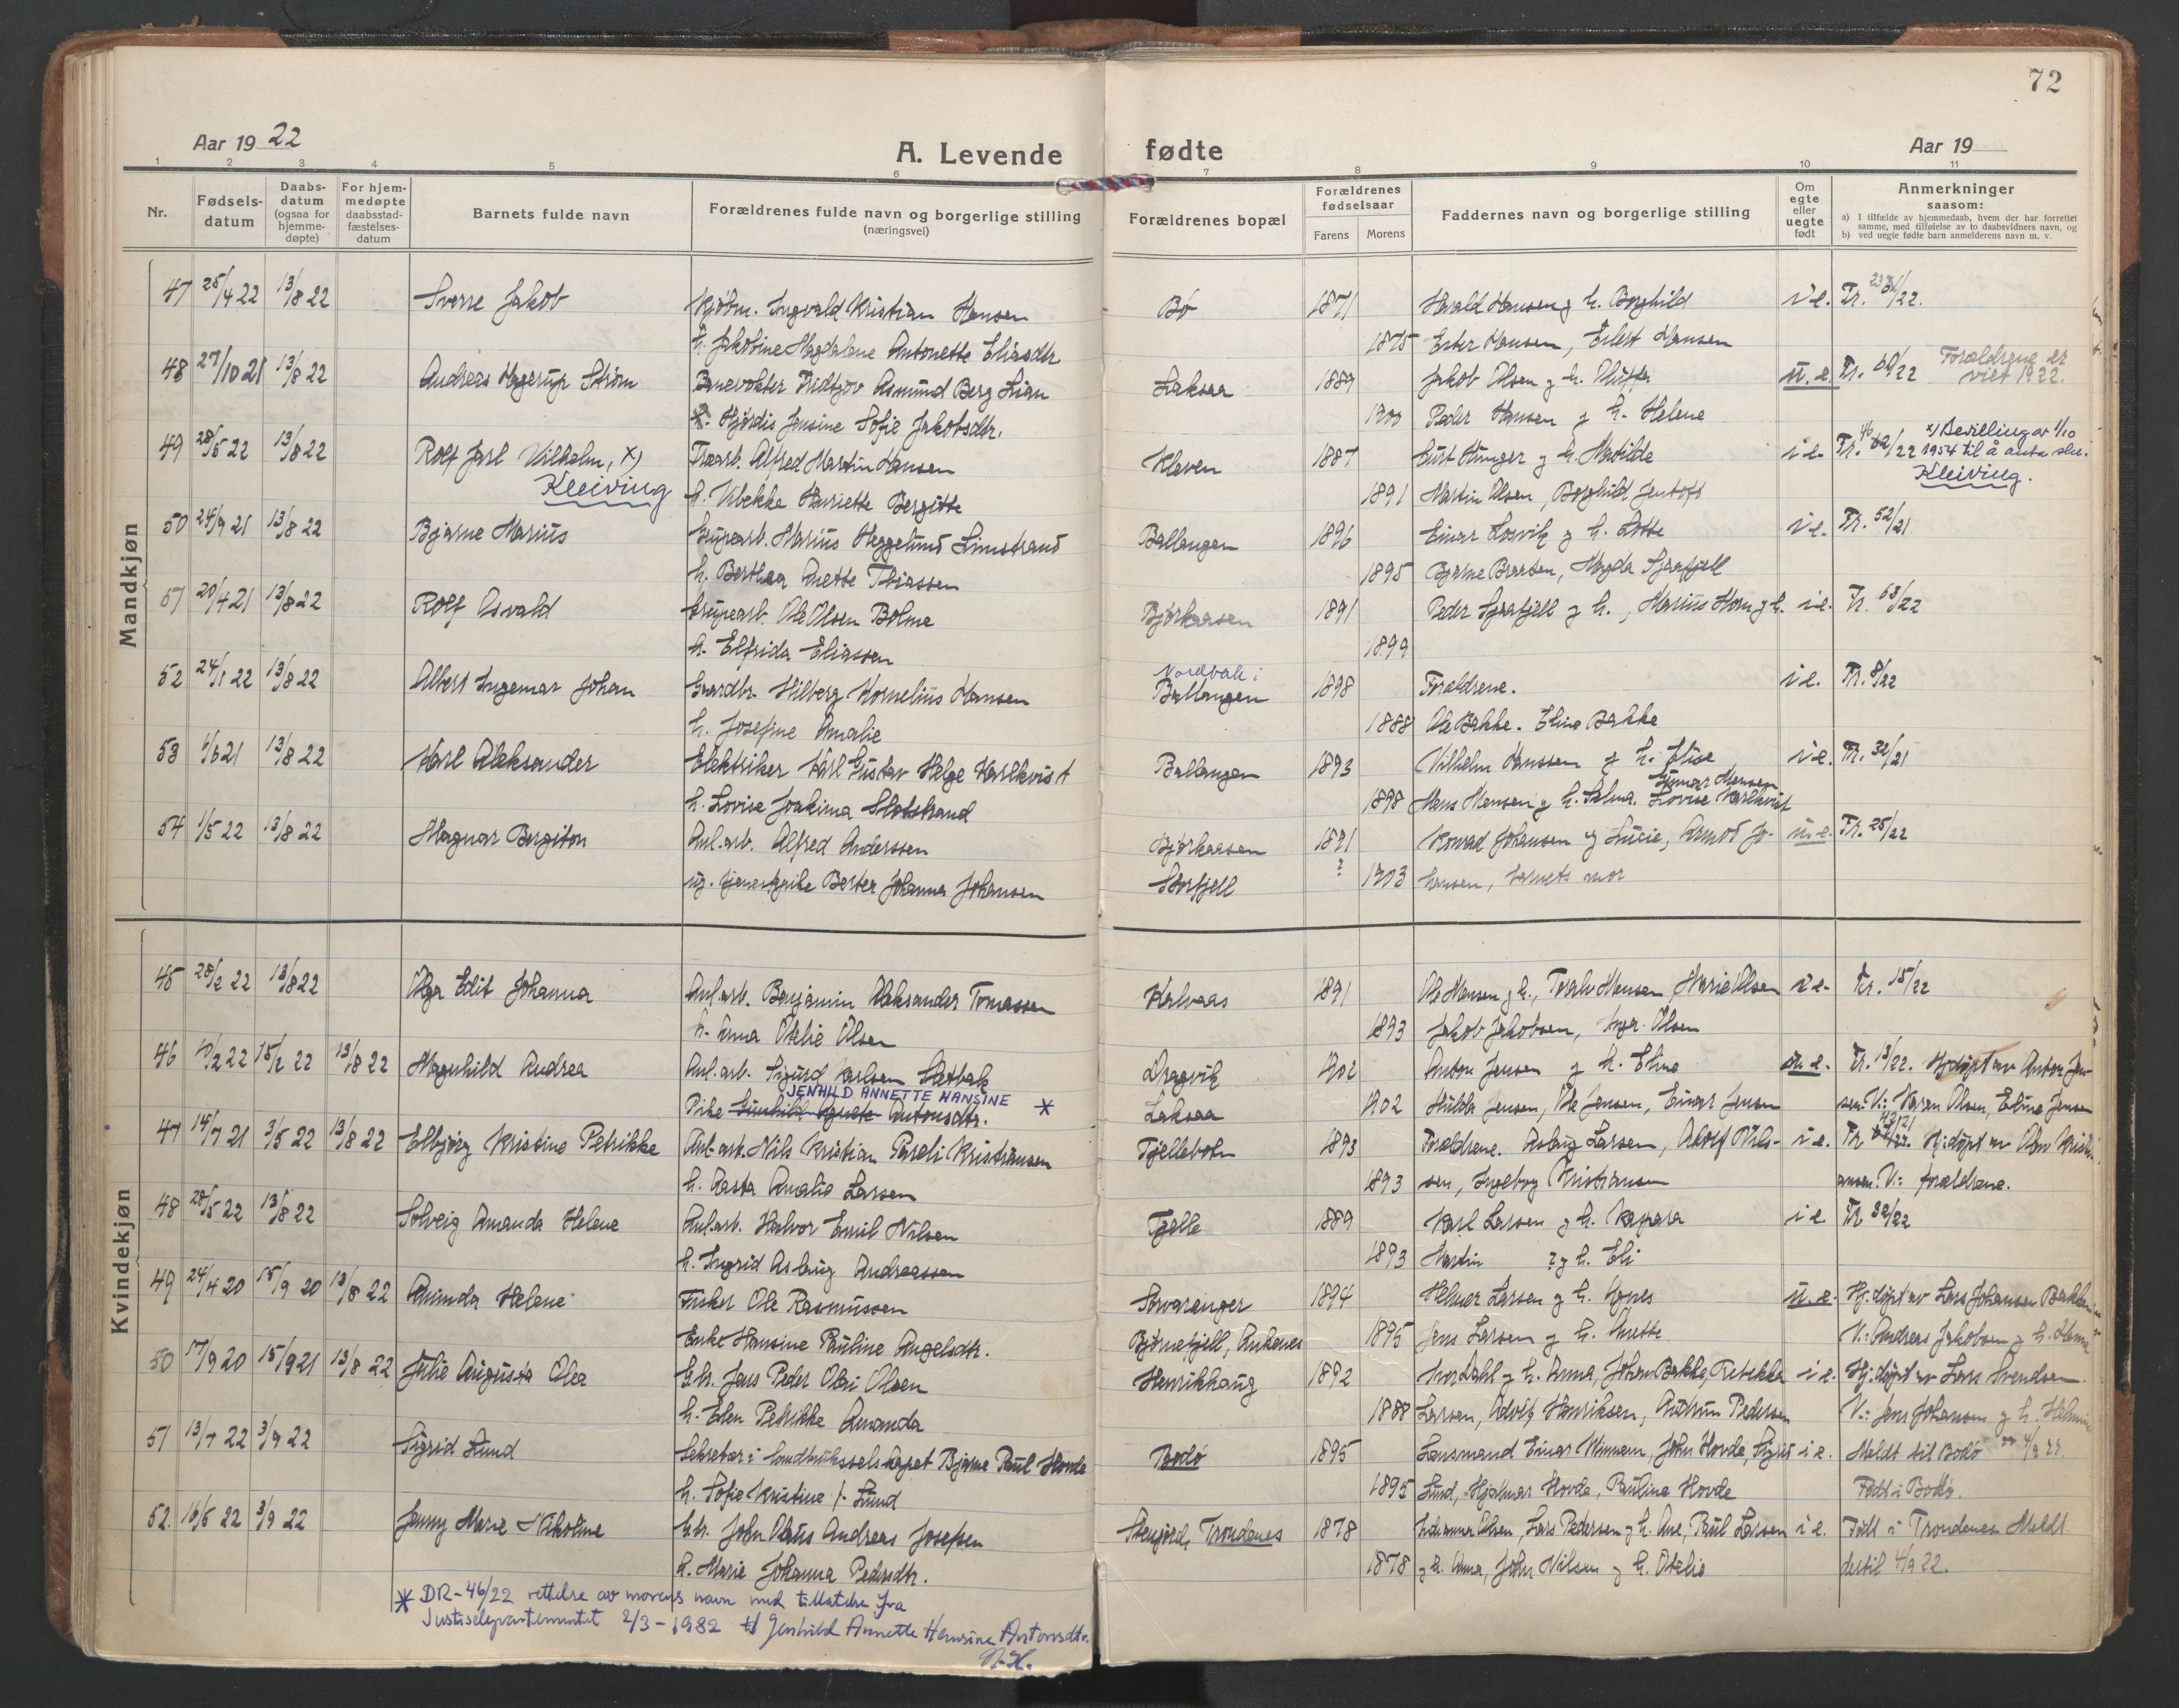 72
Aar 19 22
A. Levende fødte
Aar 19
1 2 3 4 5 6 7 8 9 10 11
Nr.
Fødsels-datum
Daabs-datum (ogsaa for hjemme-døpte)
For hjem-medøpte daabsstad-fæstelses-datum
Barnets fulde navn
Forældrenes fulde navn og borgerlige stilling (næringsvei)
Forældrenes bopæl
Forældrenes fødselsaar
Farens Morens
Faddernes navn og borgerlige stilling
Om egte eller uegte født
Anmerkninger saasom:
a) I tilfælde av hjemmedaab, hvem der har forrettet samme, med tilføielse av to daabsvidners navn, og
b) ved uegte fødte barn anmelderens navn m. v.
Mandkjøn
47 25/4 22 13/8 22 Sverre Jakob Kjøbm. Ingvald Kristian Hansen Bø 1871 Harald Hansen og h. Borghild i e. Tr. /22.
h. Jakobine Magdalene Antonette Eliasdtr 1875 Ester Hansen, Eilert Hansen
48 27/10 21 13/8 22 Andreas Hagerup Strøm Banevokter Fridtjov Asmund Berg Lian Laksaa 1889 Jakob Olsen og h. u. e. Tr. 60/22 Forældrene er viet 1922.
Hjørdis Jensine Sofie Jakobsdtr. 1900 Peder Hansen og h. Helene
49 28/5 22 13/8 22 Rolf Jarl Vilhelm, x) Træarb. Alfred Martin Hansen Kleven 1887 Curt Unger og h. Mathilde i e. Tr. /22 x) Bevilling av 1/10 1954 til å anta sln.
Kleiving h. Vibekke Henriette Bergitte 1891 Martin Olsen, Borghild Jentoft Kleiving.
50 24/9 21 13/8 22 Bjarne Marius Grupearb. Marius Heggelund Limstrand Ballangen 1896 Einar Losvik og h. Lotte i e. Tr. 52/21
h. Berthea Anette Tobiassen 1895 Bjarne Braaten, Magda Sjaafjell
51 20/4 21 13/8 22 Rolf Osvald Grupearb. Ole Olsen Bolme Bjørkaasen 1891 Peder Sjaafjell og h., Marius Horn og h. i e. Tr. 63/22
h. Elfrida Eliassen 1899
52 24/1 22 13/8 22 Albert Ingemar Johan Gaardbr. Hilberg Kornelius Hansen Nordbak i Ballangen 1898 Forældrene. i e. Tr. 8/22
h. Josefine Amalie 1888 Ole Bakke. Eline Bakke
53 1/6 21 13/8 22 Karl Aleksander Elektriker Karl Gustav Helge Karlkvist Ballangen 1893 Vilhelm Hanssen og h. Elise i e. Tr. 32/21
h. Lovise Joakima Slotstrand 1898 Mons Monsen og h. Selma. Gunnar Monsen Lovise Karlkvist
54 1/5 22 13/8 22 Magnar Bergiton Anl. arb. Alfred Anderssen Bjørkaasen 1891 Konrad Johansen og Lucie, Arnod Jo- u. e. Tr. 25/22
ug. tjenestepike Berter Johanna Johansen Storfjell ? 1903 hansen, barnets mor
Kvindekjøn
45 28/2 22 13/8 22 Olga Edit Johanna Anl. arb. Benjamin Aleksander Tomassen Kalvaas 1891 Ole Hansen og h., Toralv Hansen, Marie Olsen i e. Tr. 15/22
h. Anna Otelie Olsen 1893 Jakob Jakobsen, Inger Olsen
46 10/2 22 15/2 22 13/8 22 Magnhild Andrea Anl. arb. Sigurd Karlsen Sletbak Dragvik 1902 Anton Jensen og h. Eline u. e. Tr. 13/22. Hj.døpt av Anton Jen-
JENHILD ANNETTE HANSINE *
Pike Gunhild Agnete Antonsdtr. Laksaa 1902 Hulda Jensen, Ole Jensen, Einar Jensen sen. V.: Karen Olsen, Eline Jensen
47 14/7 21 3/5 22 13/8 22 Elbjørg Kristine Petrikke Anl. arb. Nils Kristian Pareli Kristiansen Tjellebotn 1893 Forældrene. Aslaug Larsen, Adolf Nils- i e. Tr. Hj.døpt av Olav Kristi-
h. Aasta Amalie Larsen 1893 sen, Ingeborg Kristiansen ansen. V.: forældrene.
48 28/5 22 13/8 22 Solveig Amanda Helene Anl. arb. Halvor Emil Nilsen Tjelle 1889 Karl Larsen og h. Kaspara i e. Tr 32/22
h. Ingrid Aslaug Andreassen 1893 Martin ? og h. Eli
49 24/4 20 15/9 20 13/8 22 Aminda Helene Fisker Ole Rasmussen Sørvaranger 1894 Helmer Larsen og h. Agnes u. e. Hj. døpt av Lars Johansen Bakken
Enke Hansine Pauline Angelsdtr. Bjørnefjell, Ankenes 1895 Jens Larsen og h. Anette V.: Andreas Jakobsen og h. Hanna
50 17/9 20 15/9 21 13/8 22 Julie Augusta Olea Gbr. Jens Peder Olai Olsen Henrikhaug 1892 Ivar Dahl og h. Anna, Johan Bakke, Rebekka i e. Hj. døpt av Lars Svendsen
h. Elen Petrikke Amanda 1888 Larsen, Edvig Henriksen, Gudrun Pedersen V.: Jens Johansen og h. Helmine
51 13/7 22 3/9 22 Sigrid Lund Sekretær i landbruksselskapet Bjarne Paul Hovde Bodø 1895 Lensmand Einar Winnem, John Hovde, Sigrid i e. Meldt til Bodø 4/9 22.
h. Sofie Kristine f. Lund 1895 Lund, Hjalmar Hovde, Pauline Hovde Født i Bodø.
52. 16/5 22 3/9 22 Jenny Marie Nikoline Gbr. John Olaus Andreas Josefsen Stenfjord, Trondenes 1878 Olsen, Lars Pedersen og h. Ane, Paul Larsen i e. Født i Trondenes Meldt
h. Marie Johanna Pedersdtr. 1878 og h. Anna, John Nilsen og h. Otelie dertil 4/9 22.
* DR-46/22 rettelse av morens navn med tillatelse fra
Justisdepartementet 2/3-1982 til Jenhild Annette Hansine Antonsdtr.
N.H.